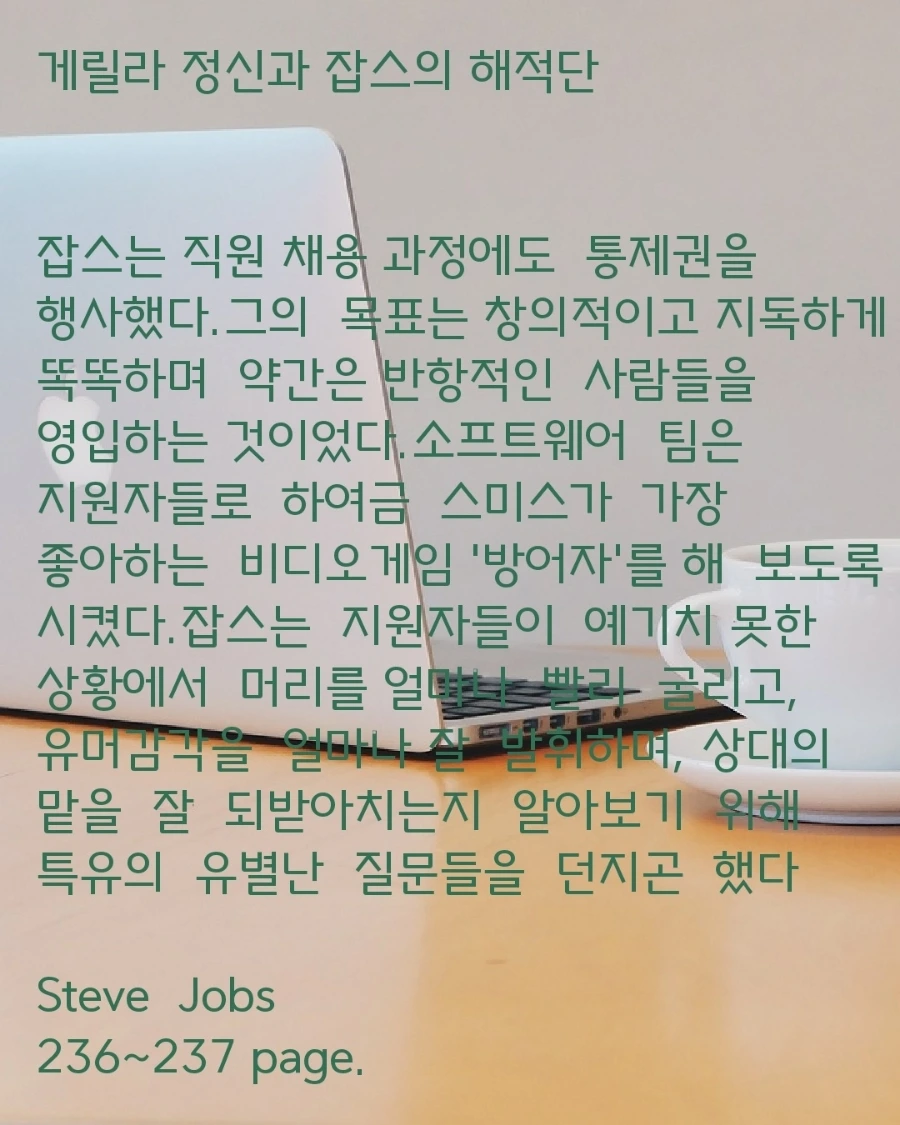 게릴라 정신과 잡스의 해적단
잡스는 직원 채용 과정에도 통제권을
행사했다.그의 목표는 창의적이고 지독하게
똑똑하며 약간은 반항적인 사람들을
영입하는 것이었다.소프트웨어 팀은
지원자들로 하여금 스미스가 가장
좋아하는 비디오게임 '방어자'를 해 보도록
시켰다.잡스는 지원자들이 예기치 못한
상황에서 머리를 얼마나 빨리 굴리고,
유머감각을 얼마나 잘 발휘하며, 상대의
맡을 잘 되받아치는지 알아보기 위해
특유의 유별난 질문들을 던지곤 했다
Steve Jobs
236~237 page.